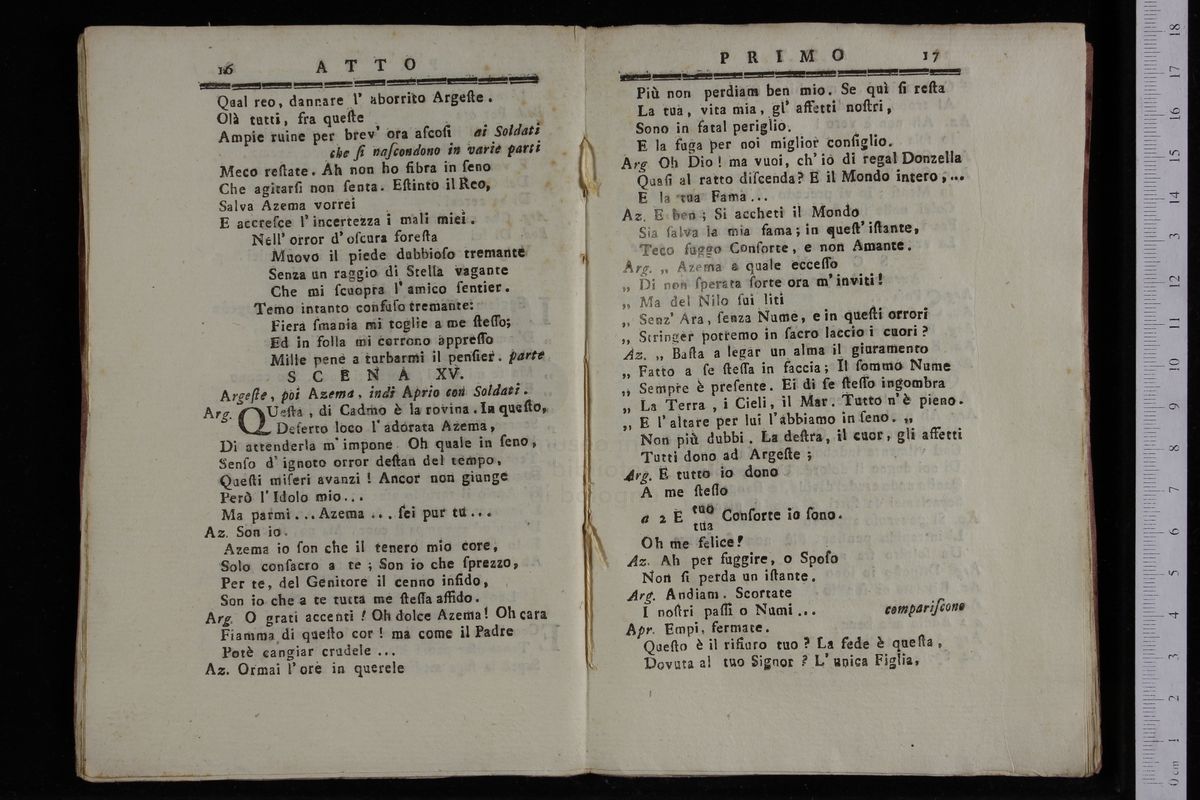 16 ATTO
Qual reo, dannare l' aborrito Argeſte.
Olà tutti, fra queſte
Ampie ruine per brev' ora aſcoſi ai Soldati
che ſi naſcondono in varie parti
Meco reſtate. Ah non ho fibra in ſeno
Che agitarſi non ſenta. Eſtinto il Reo,
Salva Azema vorrei
E accreſce l' incertezza i mali miei.
Nell' orror d' oſcura foreſta
Muovo il piede dubbioſo tremante
Senza un raggio di Stella vagante
Che mi ſcuopra l' amico ſentier.
Temo intanto confuſo tremante:
Fiera ſmania mi toglie a me ſteſſo;
Ed in folla mi corrono appreſſo
Mille pene a turbarmi il penſier. parte
SCENA XV.
Argeſte, poi Azema, indi Aprio con Soldati.
Arg. QUeſta, di Cadmo è la rovina. In queſto,
Deſerto loco l' adorata Azema,
Di attenderla m' impone. Oh quale in ſeno,
Senſo d' ignoto orror deſtan del tempo,
Queſti miſeri avanzi! Ancor non giunge
Però l' Idolo mio...
Ma parmi... Azema... ſei pur tu...
Az. Son io.
Azema io ſon che il tenero mio core,
Solo conſacro a te; Son io che ſprezzo,
Per te, del Genitore il cenno infido,
Son io che a te tutta me ſteſſa affido.
Arg. O grati accenti! Oh dolce Azema! Oh cara
Fiamma di queſto cor! ma come il Padre
Potè cangiar crudele...
Az. Ormai l' ore in querele
PRIMO 17
Più non perdiam ben mio. Se quì ſi reſta
La tua, vita mia, gl' affetti noſtri,
Sono in fatal periglio.
E la fuga per noi miglior conſiglio.
Arg Oh Dio! ma vuoi, ch' io di regal Donzella
Quaſi al ratto diſcenda? E il Mondo intero,...
E la tua Fama...
Az. E ben; Si accheti il Mondo
Sia ſalva la mia fama; in queſt' iſtante,
Teco fuggo Conſorte, e non Amante.
Arg. „ Azema a quale ecceſſo
„ Di non ſperata ſorte ora m' inviti!
„ Ma del Nilo ſui liti
„ Senz' Ara, ſenza Nume, e in queſti orrori
„ Stringer potremo in ſacro laccio i cuori?
Az. „ Baſta a legar un alma il giuramento
„ Fatto a ſe ſteſſa in faccia; Il ſommo Nume
„ Sempre è preſente. Ei di ſe ſteſſo ingombra
„ La Terra, i Cieli, il Mar. Tutto n' è pieno.
„ E l' altare per lui l' abbiamo in ſeno. „
Non più dubbi. La deſtra, il cuor, gli affetti
Tutti dono ad Argeſte;
Arg. E tutto io dono
A me ſteſſo
a 2 E tuo Conſorte io ſono.
tua
Oh me felice!
Az. Ah per fuggire, o Spoſo
Non ſi perda un iſtante.
Arg. Andiam. Scortate
I noſtri paſſi o Numi... compariſcono
Apr. Empi, fermate.
Queſto è il rifiuro tuo? La fede è queſta,
Dovuta al tuo Signor? L' unica Figlia,